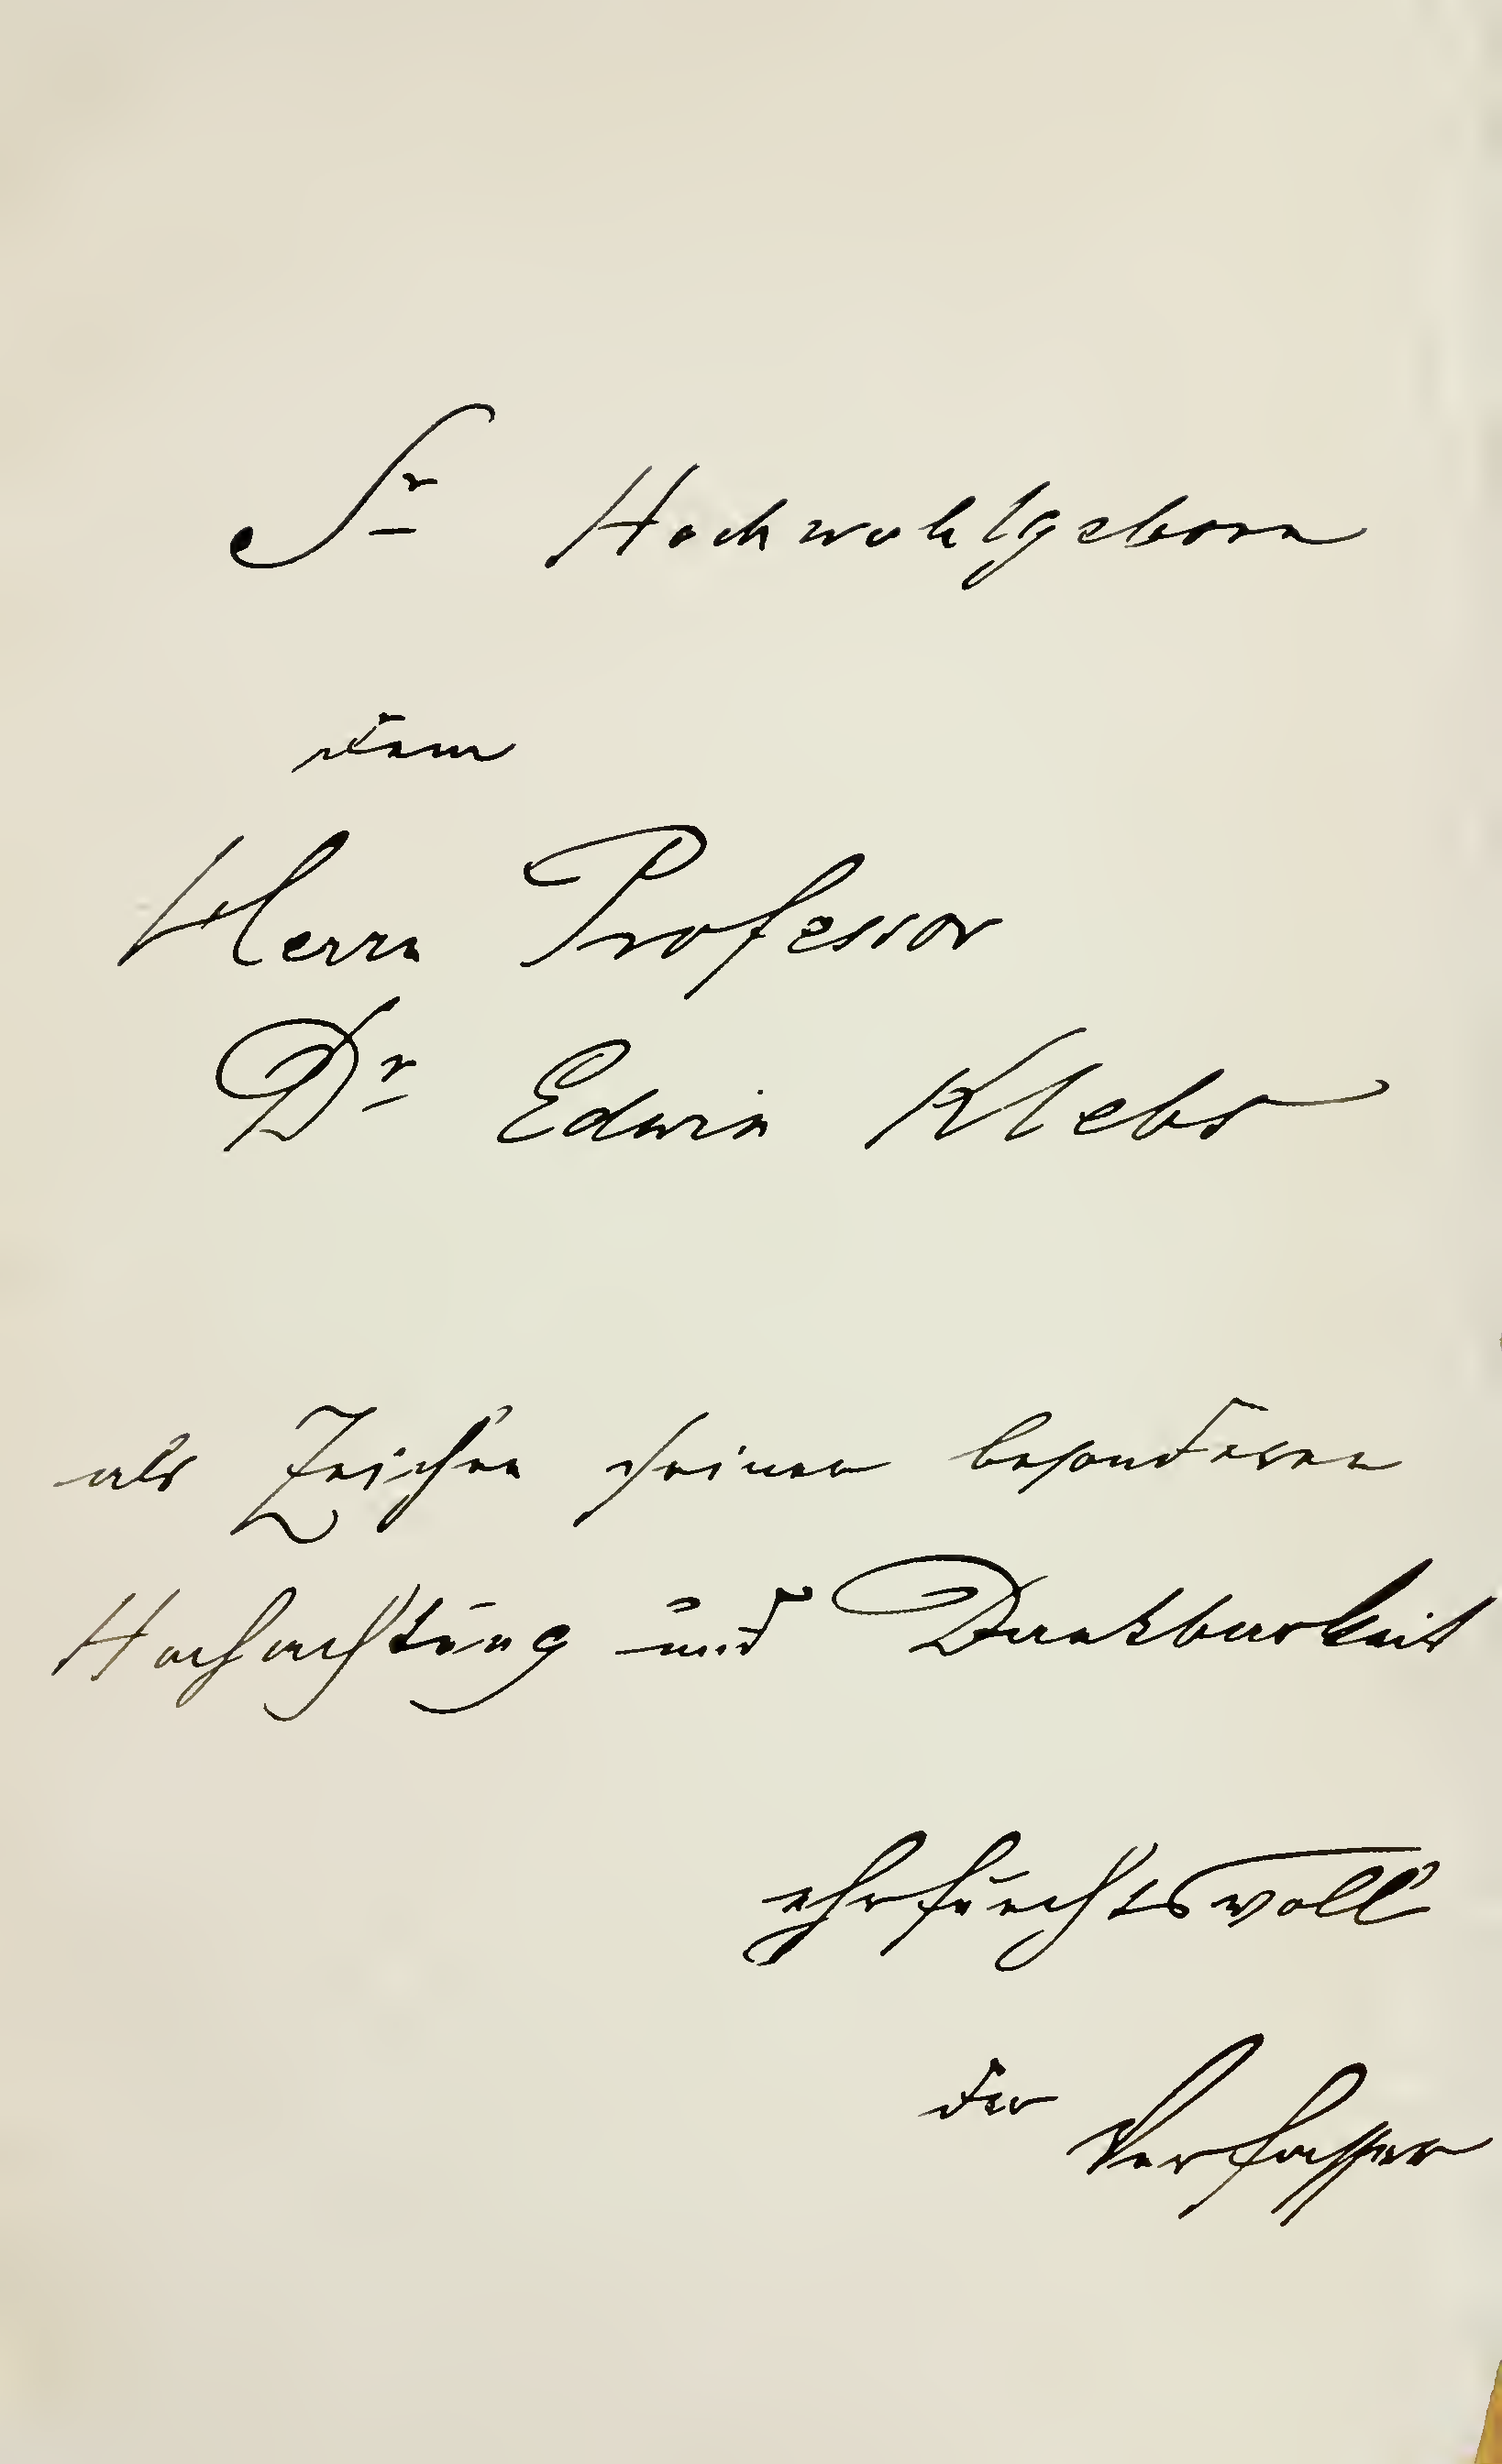 Sr Hochwohlgeborn
dem
Herrn Professor
Dr Edwin Klebs
als Zeichen seiner besonderen
Hochachtung und Dankbarkeit
ehrfurchtsvoll
der Verfasser